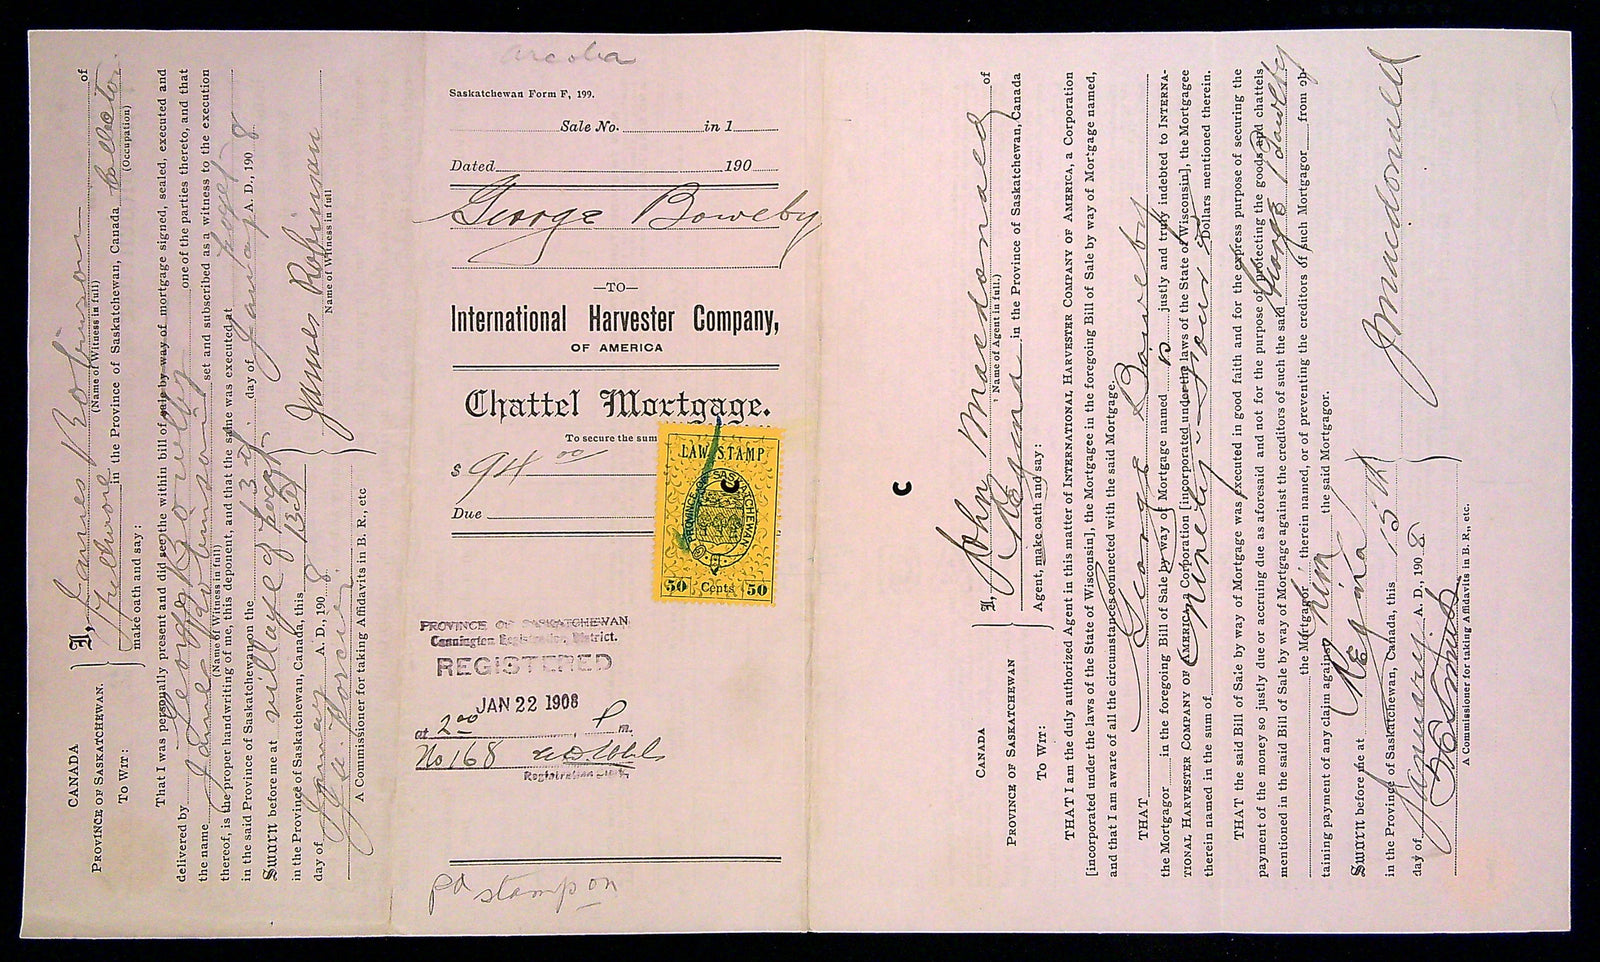 CANADA
PROVINCE OF SASKATCHEWAN.
TO WIT:
I, James Robinson of
(Name of Witness in full)
in the Province of Saskatchewan, Canada Collector
(Occupation)
make oath and say:
That I was personally present and did see the within bill of sale by way of mortgage signed, sealed, executed and
delivered by George Bowelby one of the parties thereto, and that
the name James Robinson set and subscribed as a witness to the execution
(Name of Witness in full)
thereof, is the proper handwriting of me, this deponent, and that the same was executed at
in the said Province of Saskatchewan on the 13th day of January A. D., 190 8
Sworn before me at village of
in the Province of Saskatchewan, Canada, this 13th
day of January A. D., 190 8
A Commissioner for taking Affidavits in B. R., etc
James Robinson
Name of Witness in full
arcola
Saskatchewan Form F, 199.
Sale No. in 1
Dated 190
George Boweby
—TO—
International Harvester Company,
OF AMERICA
Chattel Mortgage.
To secure the sum
$ 94 00
Due
LAW STAMP
PROVINCE OF SASKATCHEWAN
50 Cents 50
PROVINCE OF SASKATCHEWAN
Cannington Registration District.
REGISTERED
JAN 22 1908
at 2 00 P m.
No 168
Registration Clerk
pd stamp on
C
CANADA
PROVINCE OF SASKATCHEWAN
TO WIT:
I, John Macdonald of
(Name of Agent in full.)
Regina in the Province of Saskatchewan, Canada
Agent, make oath and say:
THAT I am the duly authorized Agent in this matter of INTERNATIONAL HARVESTER COMPANY OF AMERICA, a Corporation
[incorporated under the laws of the State of Wisconsin], the Mortgagee in the foregoing Bill of Sale by way of Mortgage named,
and that I am aware of all the circumstances connected with the said Mortgage.
THAT George Bowelby
the Mortgagor in the foregoing Bill of Sale by way of Mortgage named is justly and truly indebted to INTERNA-
TIONAL HARVESTER COMPANY OF AMERICA, a Corporation [incorporated under the laws of the State of Wisconsin], the Mortgagee
therein named in the sum of Ninety-Four Dollars mentioned therein.
THAT the said Bill of Sale by way of Mortgage was executed in good faith and for the express purpose of securing the
payment of the money so justly due or accruing due as aforesaid and not for the purpose of protecting the goods and chattels
mentioned in the said Bill of Sale by way of Mortgage against the creditors of such the said George Bowelby
the Mortgagor therein named, or of preventing the creditors of such Mortgagor from ob-
taining payment of any claim against him the said Mortgagor.
Sworn before me at Regina
in the Province of Saskatchewan, Canada, this 15th
day of January A. D., 190 8
A Commissioner for taking Affidavits in B. R., etc.
J Macdonald